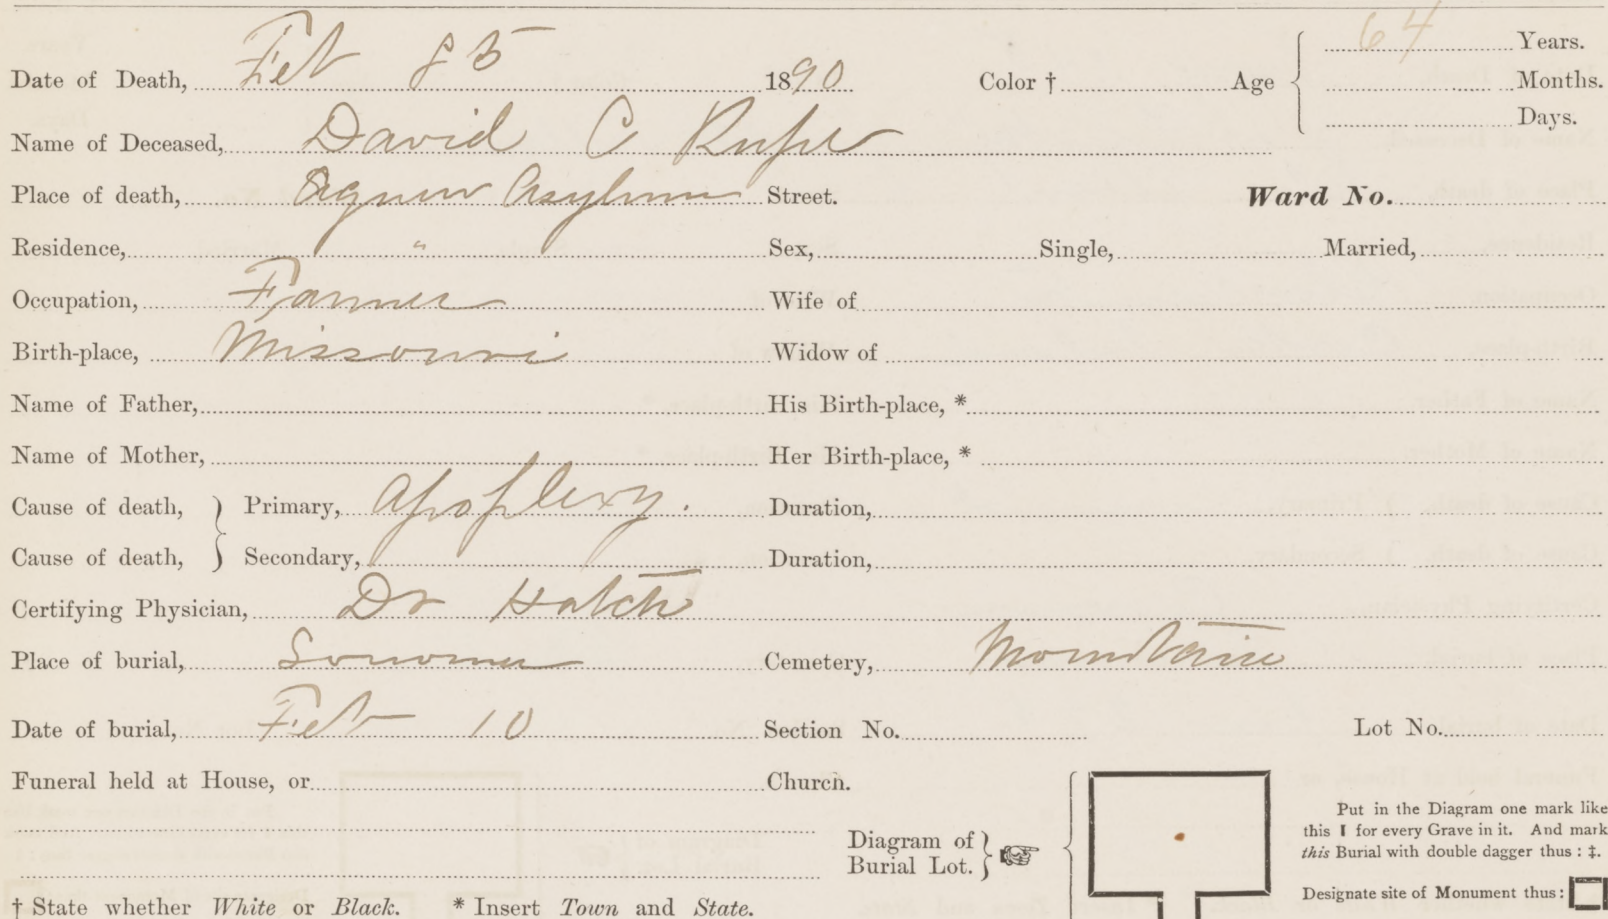 Date of Death, Feb 8 1890 Color † Age 64 Years.
Months.
Days.
Name of Deceased, David C Rupe
Place of death, Agnew Asylum Street. Ward No.
Residence, " Sex, Single, Married,
Occupation, Farmer Wife of
Birth-place, Missouri Widow of
Name of Father, His Birth-place, *
Name of Mother, Her Birth-place, *
Cause of death, Primary, Apoplexy. Duration,
Cause of death, Secondary, Duration,
Certifying Physician, Dr Hatch
Place of burial, Sonoma Cemetery, Mountain
Date of burial, Feb 10 Section No. Lot No.
Funeral held at House, or Church.
Diagram of Burial Lot.
Put in the Diagram one mark like
this I for every Grave in it. And mark
this Burial with double dagger thus: ‡.
Designate site of Monument thus:
† State whether White or Black. * Insert Town and State.